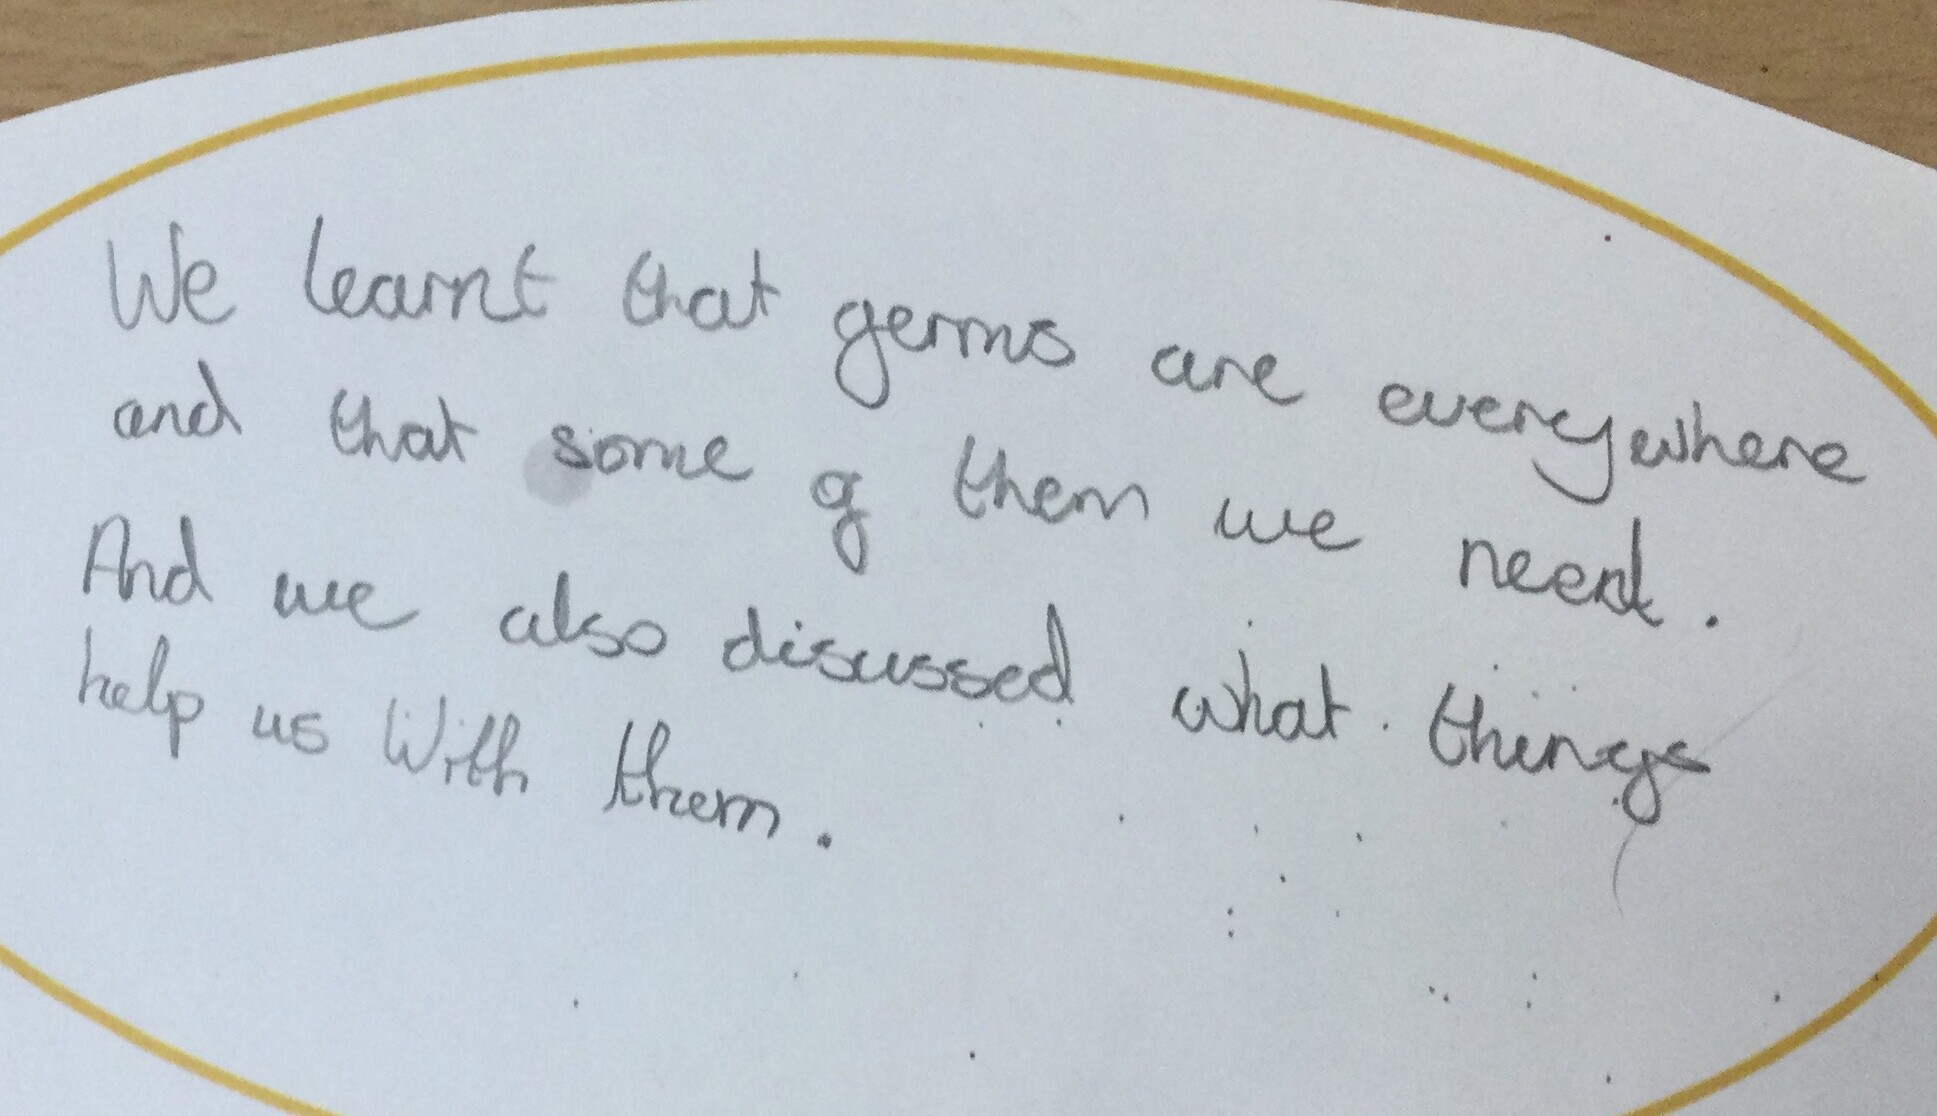 We learnt that germs are everywhere
and that some of them we need.
And we also discussed what things
help us With them.